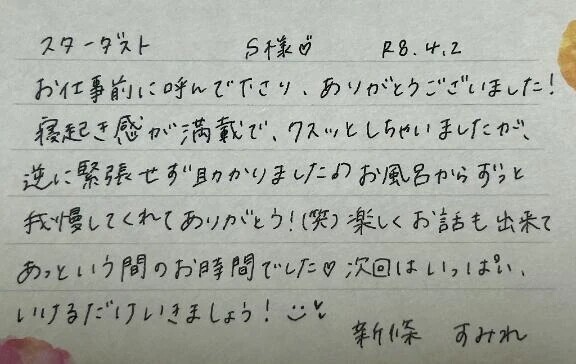 スターダスト S様♡ R8.4.2
お仕事前に呼んで下さり、ありがとうございました!
寝起き感が満載で、クスッとしちゃいましたが、
逆に緊張せず助かりました♪お風呂からずっと
我慢してくれてありがとう!(笑)楽しくお話も出来て
あっという間のお時間でした♡次回はいっぱい、
いけるだけいきましょう!
新條 すみれ